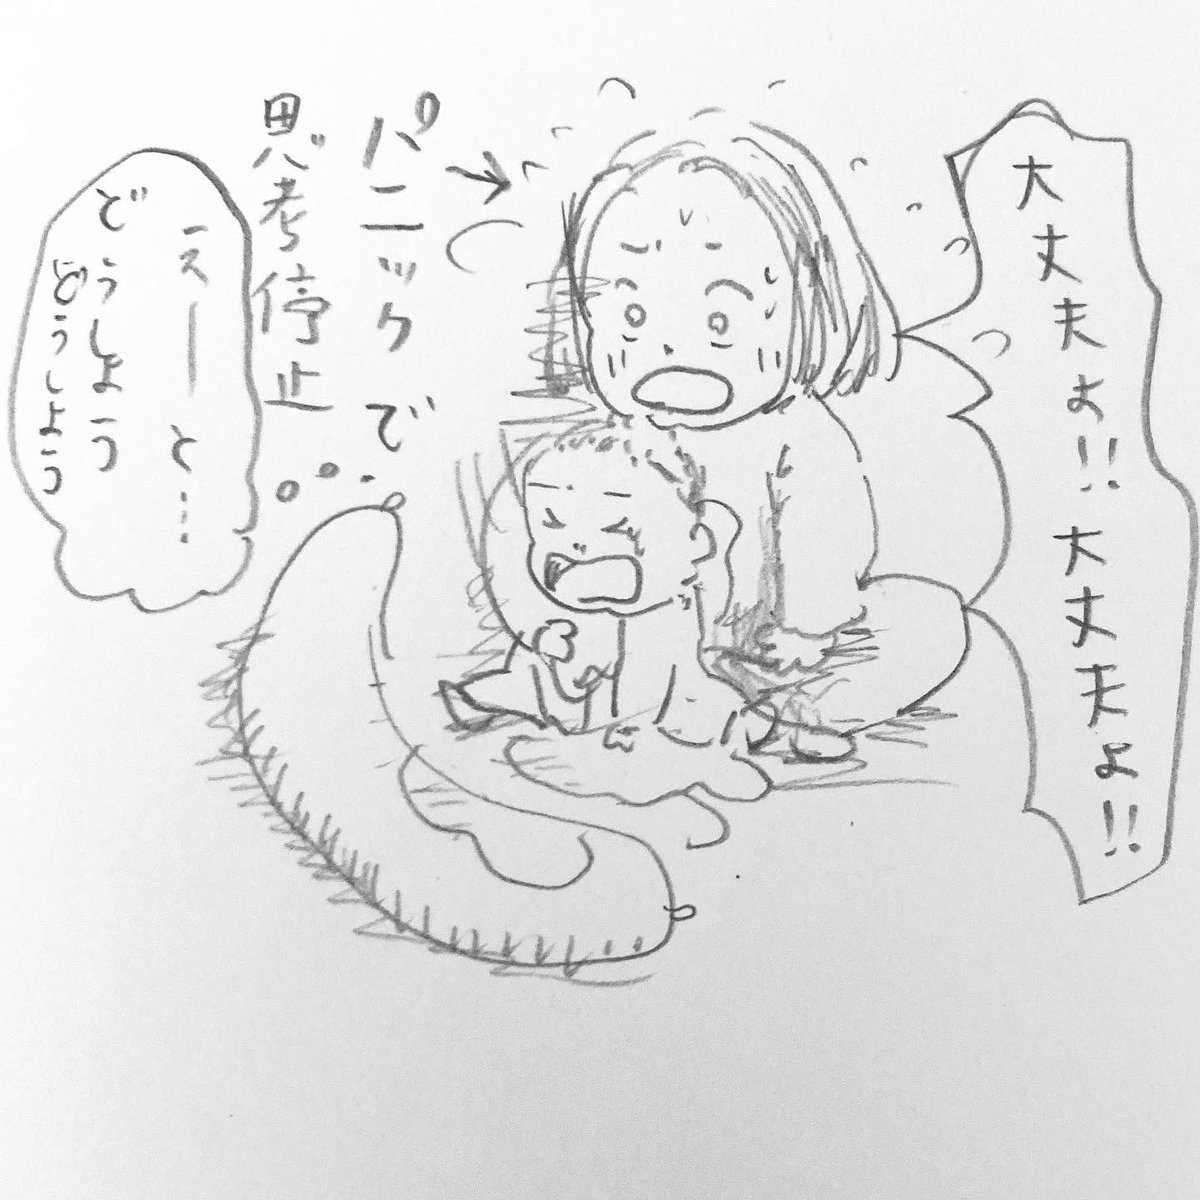 大丈夫よ!!大丈夫よ!!
パニックで
思考停止
えーーと…
どうしよう
どうしよう